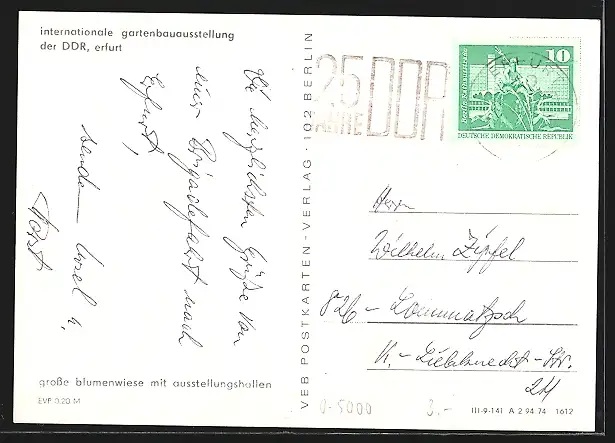 internationale gartenbauausstellung
der DDR, erfurt
Die herzlichsten Grüße von
einer Brigadefahrt nach
Erfurt,
senden Ursel u.
Horst
große blumenwiese mit ausstellungshallen
EVP 0.20 M
VEB POSTKARTEN-VERLAG · 102 BERLIN
25
JAHRE DDR
10
DEUTSCHE DEMOKRATISCHE REPUBLIK
Herrn
Wilhelm Zipfel
826 – Lommatzsch
K.-Liebknecht-Str.
24
0-5000
2,-
III-9-141 A 2 94 74 1612